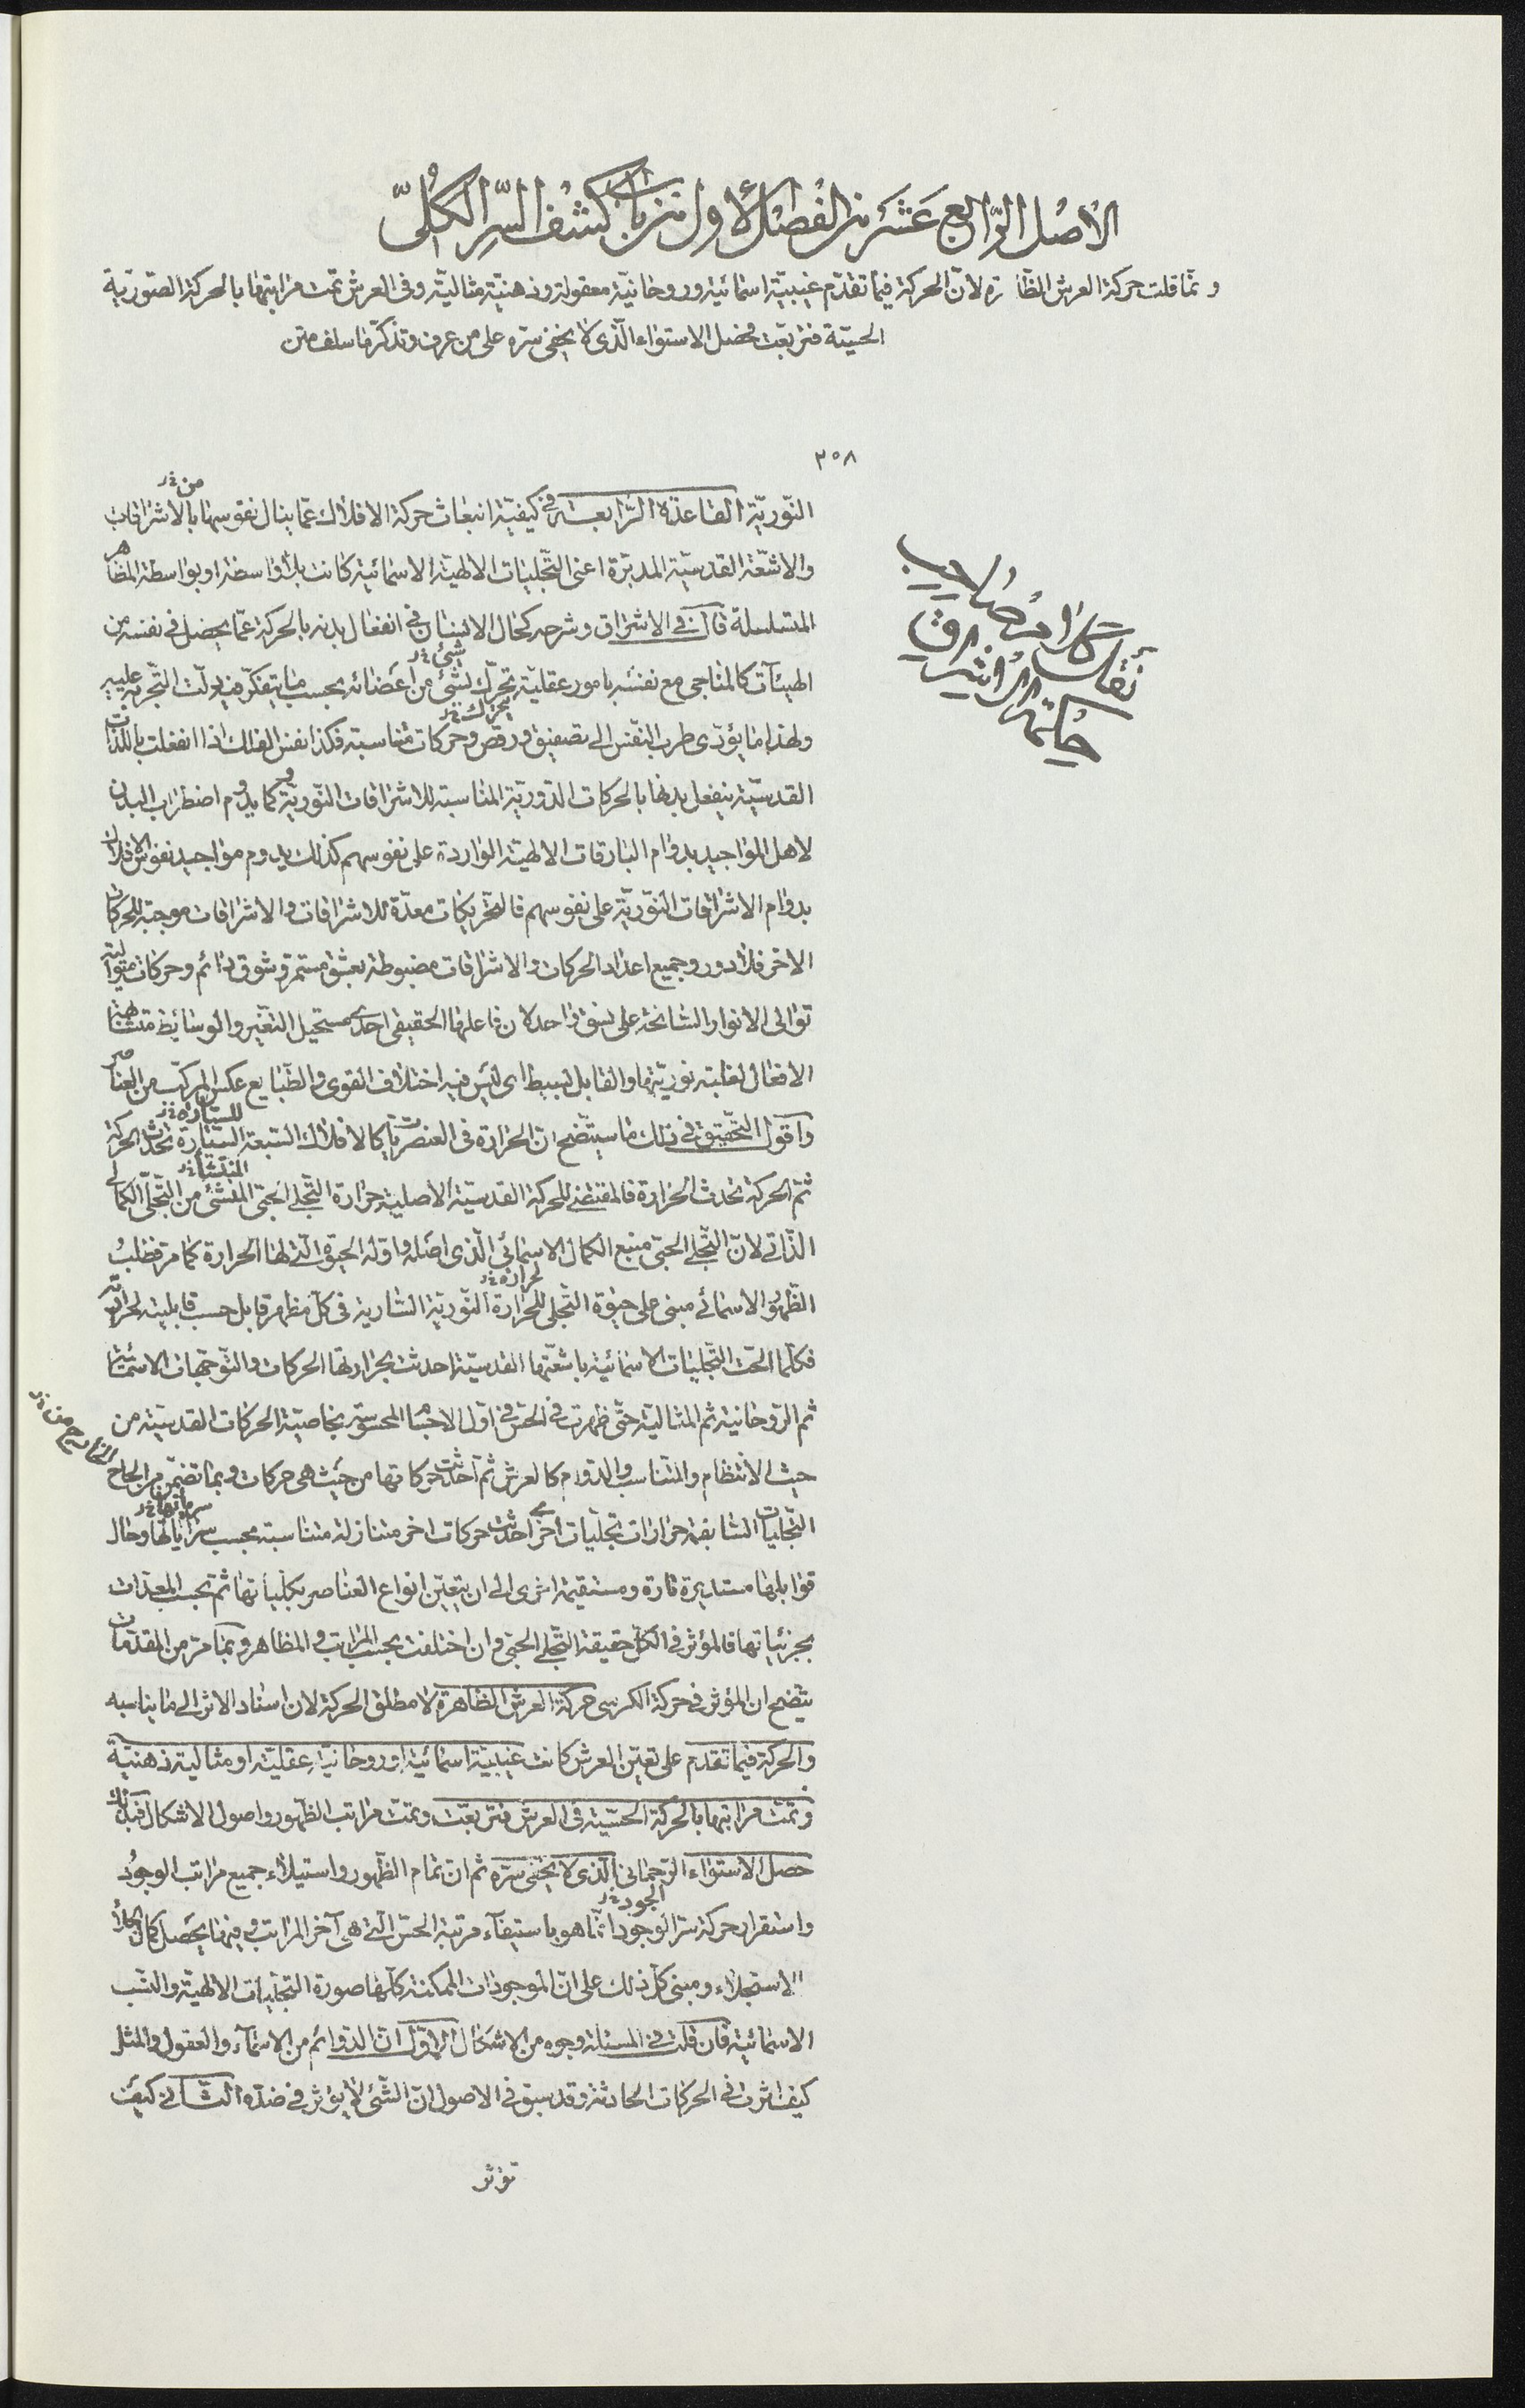 الاصل الرابع عشر من الفصل الأول من باب كشف السر الكلى
وتما قلت حركة العرش الظا رة لان الحركة فيما تقدم غيبية اسمائية وروحانية معقولة وذهنية مثالية وفى العرش تمت مراتبها بالحركة الصورية
الحسية فتربعت فحصل الاستواء الذى لا يخفى سره على من عرف وتذكر ما سلف متن
٣٥٨
النورية القاعدة الرابعة فى كيفية انبعاث حركة الافلاك عما ينال نفوسها بالاشراقات
من خ ر
والاشعة القدسية المدبرة اعنى التجليات الالهية الاسمائية كانت بلا واسطة او بواسطة المظاهر
المتسلسلة قال فى الاشراق وشرحه كحال الانسان فى انفعال بدنه بالحركة عما يحصل فى نفسه من
الهيئات كالمناجى مع نفسه بامور عقلية تحرك بشئ من أعضائه بحسب ما يتفكر فيه دلت التجربة عليه
شئ خ ر
ولهذا ما يؤدى طرب النفس الى تصفيق ورقص وحركات متناسبة فكذا نفس الفلك اذا انفعلت باللذات
القدسية ينفعل بدنها بالحركات الدورية المناسبة للاشراقات النورية وكما يدوم اضطراب البدن
لاهل المواجيد بدوام البارقات الالهية الواردة على نفوسهم كذلك يدوم مواجيد نفوس الافلاك
بدوام الاشراقات النورية على نفوسهم فالتحريكات معدة للاشراقات والاشراقات موجبة للحركات
الاخر فلا دور وجميع اعداد الحركات والاشراقات مضبوطة بعشق مستمر وشوق دائم وحركات متوالية
توالى الانوار السانحة على نسق واحد لان فاعلها الحقيقى احدى مستحيل التغير والوسائط متشابهة
الافعال لغلبة نوريتها والقابل لبسيط اى ليس فيه اختلاف القوى والطبايع عكس المركب من العناصر
واقول التحقيق فى ذلك ما سيتضح ان الحرارة فى العنصريات كالافلاك السبعة السيارة تحدث الحركة
للسيارة خ ر
ثم الحركة تحدث الحرارة فالمقتضى للحركة القدسية الأصلية حرارة التجلى الحبى المنشئ من التجلى الكمالى
المنشأ خ ر
الذاتى لان التجلى الحبى منبع الكمال الاسمائى الذى اصله واوله الحيوة التى لها الحرارة كما مر فطلب
الظهور الاسمائى مبنى على حيوة التجلى للحرارة النورية السارية فى كل مظهر قابل حسب قابلية لحرارته
لحرارة خ ر
فكلما الحت التجليات الاسمائية باشعتها القدسية احدثت بحرارتها الحركات والتوجهات الاسمائية
ثم الروحانية ثم المثالية حتى ظهرت فى الحس فى اول الاجسام المحسوسة بخاصية الحركات القدسية من
حيث الانتظام والتناسب والدوام كالعرش ثم احدثت حركاتها من حيث هى حركات وبما تضمن من الحاح
التجليات السابقة حرارات تجليات اخر احدثت حركات اخر متنازلة متناسبة بحسب سراياتها وحال
قوابلها مستديرة تارة ومستقيمة اخرى الى ان يتعين انواع العناصر بكلياتها ثم بحسب المعدات
بجزئياتها فالمؤثر فى الكل حقيقة التجلى الحبى وان اختلفت بحسب المراتب والمظاهر وبما مر من المقدمات
يتضح ان المؤثر فى حركة الكرسى حركة العرش الظاهرة لا مطلق الحركة لان اسناد الاثر الى ما يناسبه
والحركة فيما تقدم على تعين العرش كانت غيبية اسمائية او روحانية عقلية او مثالية ذهنية
وتمت مراتبها بالحركة الحسية فى العرش فتربعت وتمت مراتب الظهور واصول الاشكال فبذلك
حصل الاستواء الرحمانى الذى لا يخفى سره ثم ان تمام الظهور واستيلاء جميع مراتب الوجود
واستقرار حركة سر الوجود انما هو باستيفاء مرتبة الحس التى هى آخر المراتب وفيها يحصل كمال الجلاء
الجود خ ر
الاستجلاء ومبنى كل ذلك على ان الموجودات الممكنة كلها صورة التجليات الالهية والنسب
الاسمائية فان قلت فى المسئلة وجوه من الاشكال الاول ان الدوائم من الاسماء والعقول والمثل
كيف اثرت فى الحركات الحادثة وقد سبق فى الاصول ان الشئ لا يؤثر فى ضده الثانى كيف
تؤثر
نقل كلام صاحب
حكمة الاشراق